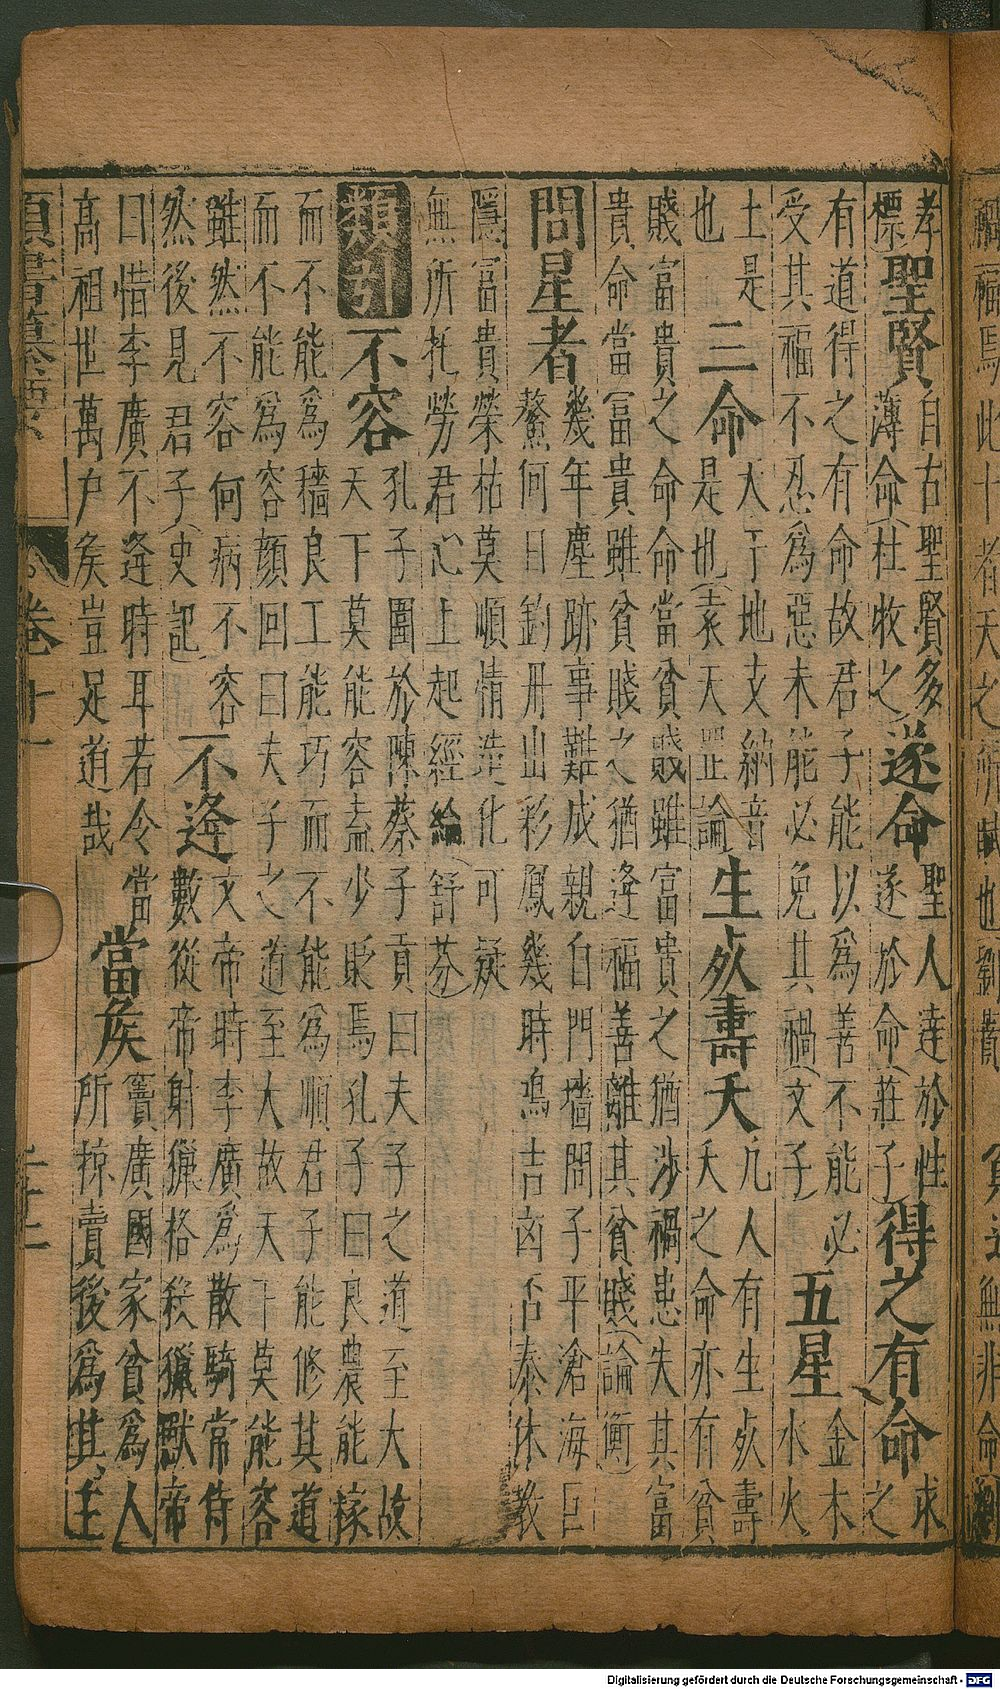 孝標 聖賢 自古聖賢多
薄命(杜牧之) 遂命 聖人達於性
遂於命(莊子) 得之有命 求之
有道得之有命故君子能以為善不能必
受其福不忍為惡未能必免其禍(文子) 五星 金木水火
土是也 三命 天干地支納音
是也(袁天罡論) 生死壽夭 凡人有生死壽
夭之命亦有貧
賤富貴之命命當貧賤雖富貴之猶涉禍患失其富
貴命當富貴雖貧賤之猶逢福善離其貧賤(論衡)
問星者 幾年塵跡事難成親自門墻問子平滄海巨
鰲何日釣丹山彩鳳幾時鳴吉凶否泰休教
隱富貴榮枯莫順情造化可凝
無所托勞君心上起經綸(舒芬)
類引 不容 孔子圍於陳蔡子貢曰夫子之道至大故
天下莫能容盍少貶焉孔子曰良農能稼
而不能為穡良工能巧而不能為順君子能修其道
而不能為容顏回曰夫子之道至大故天下莫能容
雖然不容何病不容
然後見君子(史記) 不逢 文帝時李廣為散騎常侍
數從帝射獵格殺獵獸帝
曰惜李廣不逢時耳若令當
高祖世萬戶侯豈足道哉 當侯 竇廣國家貧為人
所掠賣後為其主
類書纂要 卷十一 二十二
Digitalisierung gefördert durch die Deutsche Forschungsgemeinschaft - DFG